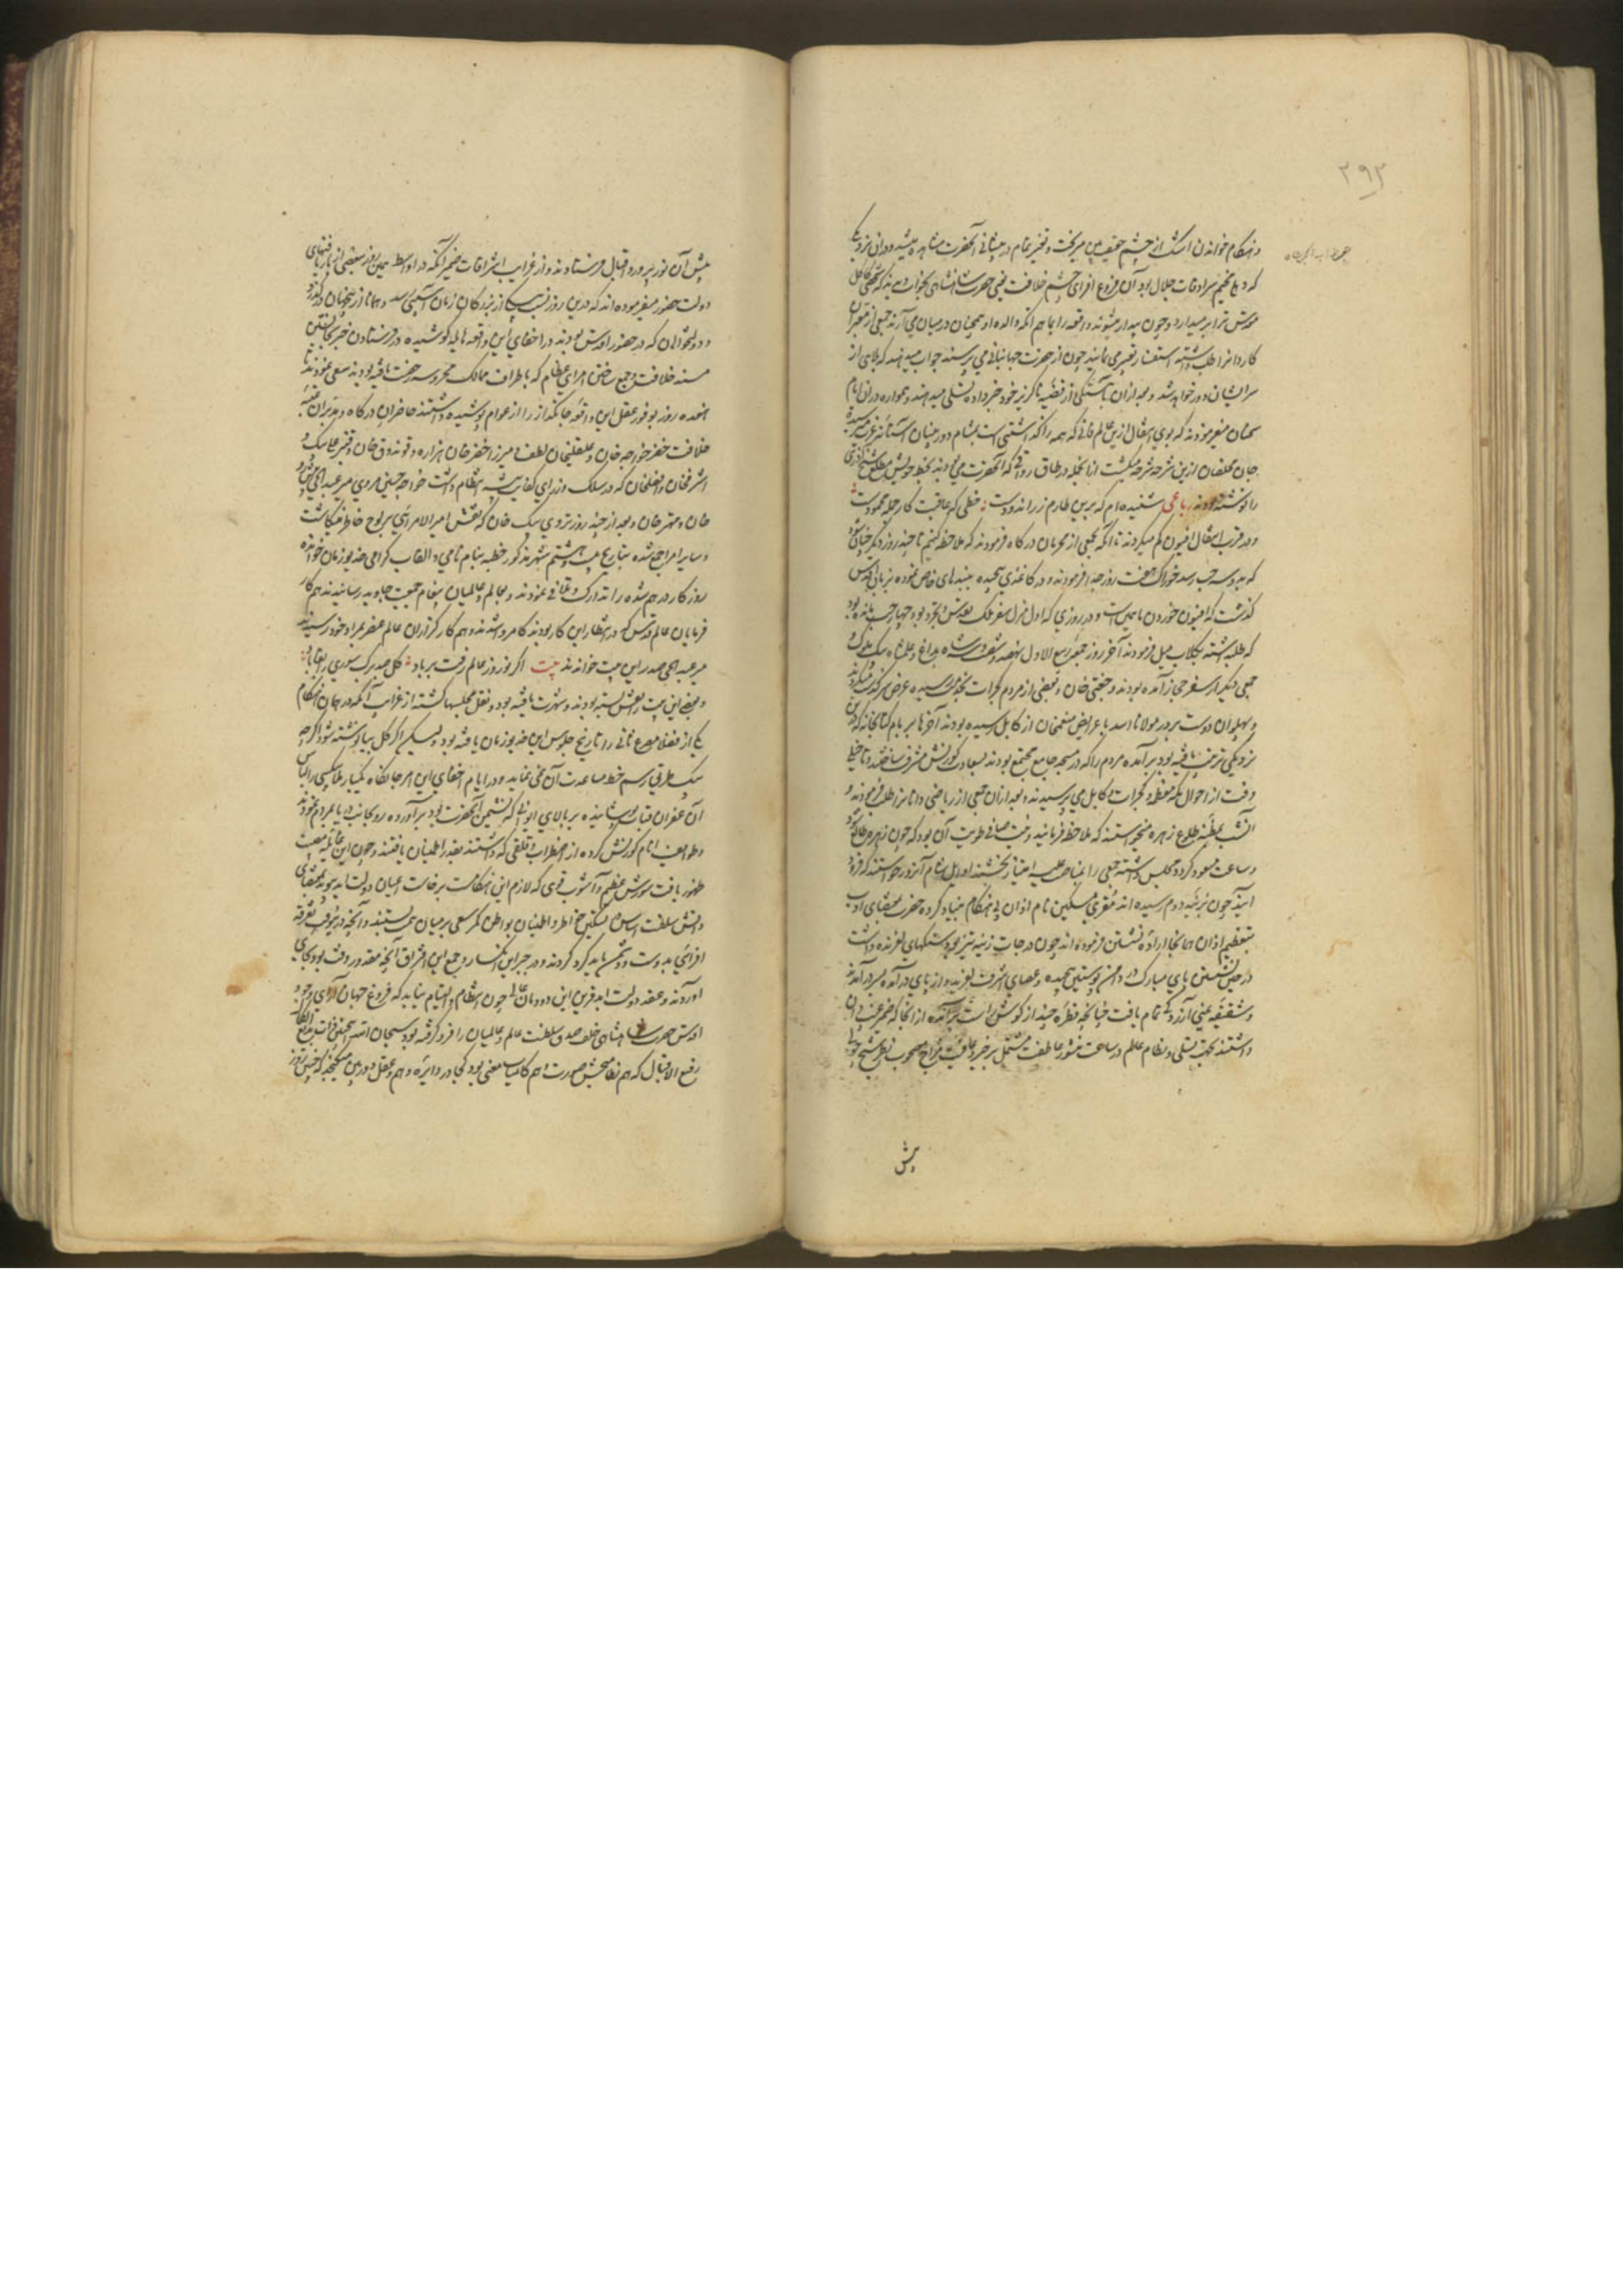 ۲۹۳
و هنگام خواندن اشک از چشم حقیقت‌بین میریخت و تغیر تمام در پیشانی آنحضرت مشاهده میشد و دران نزدیکی
که دهلی مخیم سرادقات جلال بود آن فروغ افزای چشم خلافت یعنی حضرت شاهنشاهی بخواب دیدند که شخصی کاکل
مویش را بر میدارد و چون بیدار میشوند واقعه را بماهم انگه والده ادهم خان درمیان می آرند جمعی از معبران
کاردانرا طلب داشته استفسار تعبیر می نمایند چون از حضرت جهانبانی می پرسند جواب میدهند که بلای از
سر ایشان دور خواهد شد و بعد ازان باهستگی از قضیه ناگزیر خود خبر داده تسلی میدهند و همواره دران ایام
سخنان میفرمودند که بوی انتقال ازین عالم فانی که همه را گذاشتنی است بمشام دوربینان آستانه عزت میرسید
جان مخلصان ازین شرحه شرحه میگشت ازانجمله در طاق رواقی که آنحضرت می بودند بخط خویش مطلع شیخ آذری
را نوشته بودند رباعی شنیده‌ام که برین طارم زر اندودست خطی که عاقبت کار جمله محمودست
و در قرب انتقال افیون کم میکردند تا آنکه بجمعی از محرمان درگاه فرمودند که ملاحظه کنیم تا چند روز دیگر
که بدو سه حب رسد خوراک هفت روز جدا فرمودند و در کاغذی پیچیده ببندهای خاص نموده بزبان اقدس
گذشت که افیون خوردن ما همین است و در روزی که اول منزل سفر ملک تقدس و تجرد بود چهار حب مانده بود
که طلب داشته بگلاب میل فرمودند آخر روز جمعه ربیع الاول نهصد و شصت و سه شاه بداغ و عالم شاه بیک ملوک و
جمعی دیگر از سفر حجاز آمده بودند و چغتی خان و بعضی از مردم گجرات بخدمت رسیده عرض سرگذشت میکردند
و پهلوان دوست میر بر و مولانا اسد با عرایض منعم خان از کابل رسیده بودند آخرها بر بام کتابخانه که دران
نزدیکی ترتیب یافته بود برآمده مردم را که در مسجد جامع مجتمع بودند بسعادت کورنش مشرف ساختند و تا خیلی
وقت از احوال مکه معظمه و گجرات و کابل می پرسیدند و بعد ازان جمعی از ریاضی دانانرا طلب فرمودند و
آنشب مظنه طلوع زهره میخواستند که ملاحظه فرمایند و نیت صافی طویت آن بود که چون زهره طالع شود
و ساعت مسعود گردد مجلس داشته جمعی را بمناصب علیه امتیاز بخشند اوایل شام آنروز خواستند که فرود
آیند چون بزینه دوم رسیده اند مقری مسکین نام اذان بی هنگام بنیاد کرده حضرت بمقتضای ادب
بتعظیم اذان همانجا اراده نشستن فرموده اند چون درجات زینه تیز بود و سنگهای لغزنده داشت
در حین نشستن پای مبارک در دامن پوستین پیچیده و عصای اشرف لغزید و از پای درآمده بسر درآمدند
و شقیقه یمنی آزردگی تمام یافت چنانچه قطره چند از گوش راست برآمده از آنجا که ضمیر غیب دان
داشتند بجهت تسلی و نظام عالم در ساعت منشور عاطفت مشتمل بر خیر و عافیت مزاج مصحوب نظر شیخ جولی
پیش
پیش آن نور پرورد اقبال فرستادند و از غرایب اشراقات ضمیر آنکه در اواسط همین روز ببعضی از باریافتهای
دولت حضور میفرموده اند که درین روز نسبت بیکی از بزرگان زمان آسیبی رسد و همانا ازین جهان درگذرد
و دولتخواهان که در حضور اقدس بودند در اخفای این واقعه هایله کوشیده در فرستادن خبر بجانشین
مسند خلافت و جمع ساختن امرای عظام که باطراف ممالک محروسه رخصت یافته بودند سعی نمودند تا
هفده روز بوفور عقل این واقعه جانگداز را از عوام پوشیده داشتند حاضران درگاه و مدبران
خلافت خضر خواجه خان و علیقلیخان لطیف میرزا خضر خان هزاره و قوندوق خان و قنبر علی بیک و
اشرفخان و افضلخان که در سلک وزرای کفایت پیشه انتظام داشت خواجه حسین مروی میر عبدالحی
خان و مهتر خان و بعد از چند روز تردی بیک خان که نقش امیر الامرائی بر لوح خاطر مینگاشت
و سایر امرا جمع شده بتاریخ بیست و هشتم شهر مذکور خطبه بنام نامی و القاب گرامی خدیو زمان خوانده
روزگار درهم شده را تدارک و تلافی نمودند و بعالم و عالمیان پیغام جمعیت جاوید رسانیدند هم کار
فرمایان عالم قدس که در انتظار این کار بودند کامروا شدند و هم کارگذاران عالم عنصر بمراد خود رسیدند
میر عبدالحی صدر این بیت خواندند بیت اگر نوروز عالم رفت بر باد گل صد برگ سوری را بقا باد
و بعضی این بیت را نقش بسته بودند و شهرت یافته بود و نقل مجلسها گشته از غرایب آنکه در همان هنگام
یکی از فضلا مصرع ثانی را تاریخ جلوس این خدیو زمان یافته بود و لیکن اگر گل بیا نوشته شود اگرچه
بیک طریق رسم خط مساعدت آن می نماید و در ایام اخفای این امر جانکاه یکبار ملا بیکسی را لباس
آن غفران قباب پوشانیده بر بالای ایوانی که نشیمن آنحضرت بود برآورده رو بجانب دریا بمردم نمودند
و طوایف انام کورنش کرده از اضطراب و قلقی که داشتند بقدر اطمینان یافتند و چون این قضیه
ظهور یافت شورش عظیم و آشوب قوی که لازم این هنگامست برخاست اعیان دولت ابد پیوند بمقتضای
دانش سلطنت اساس تسکین خواطر و اطمینان بواطن کمر سعی بر میان بستند و آنچه در تفرقه
افزائی بدوست و دشمن باید کرد کردند و در جبر این انکسار و جمع این افتراق آنچه مقدور وقت بود بجای
آوردند و عقد دولت ابد قرین این دودمان عالی چون انتظام و التیام نیابد که فروغ جهان آرای وجود
اقدس حضرت شاهنشاهی خلف صدق سلطنت عالم و عالمیان را فرو گرفته بود سبحان الله اینچنین ذات
رفیع الاقبال که هم نظام بخش صورت و هم کامیاب معنی بود کجا در دایره وهم و عقل دوربین میگنجد که